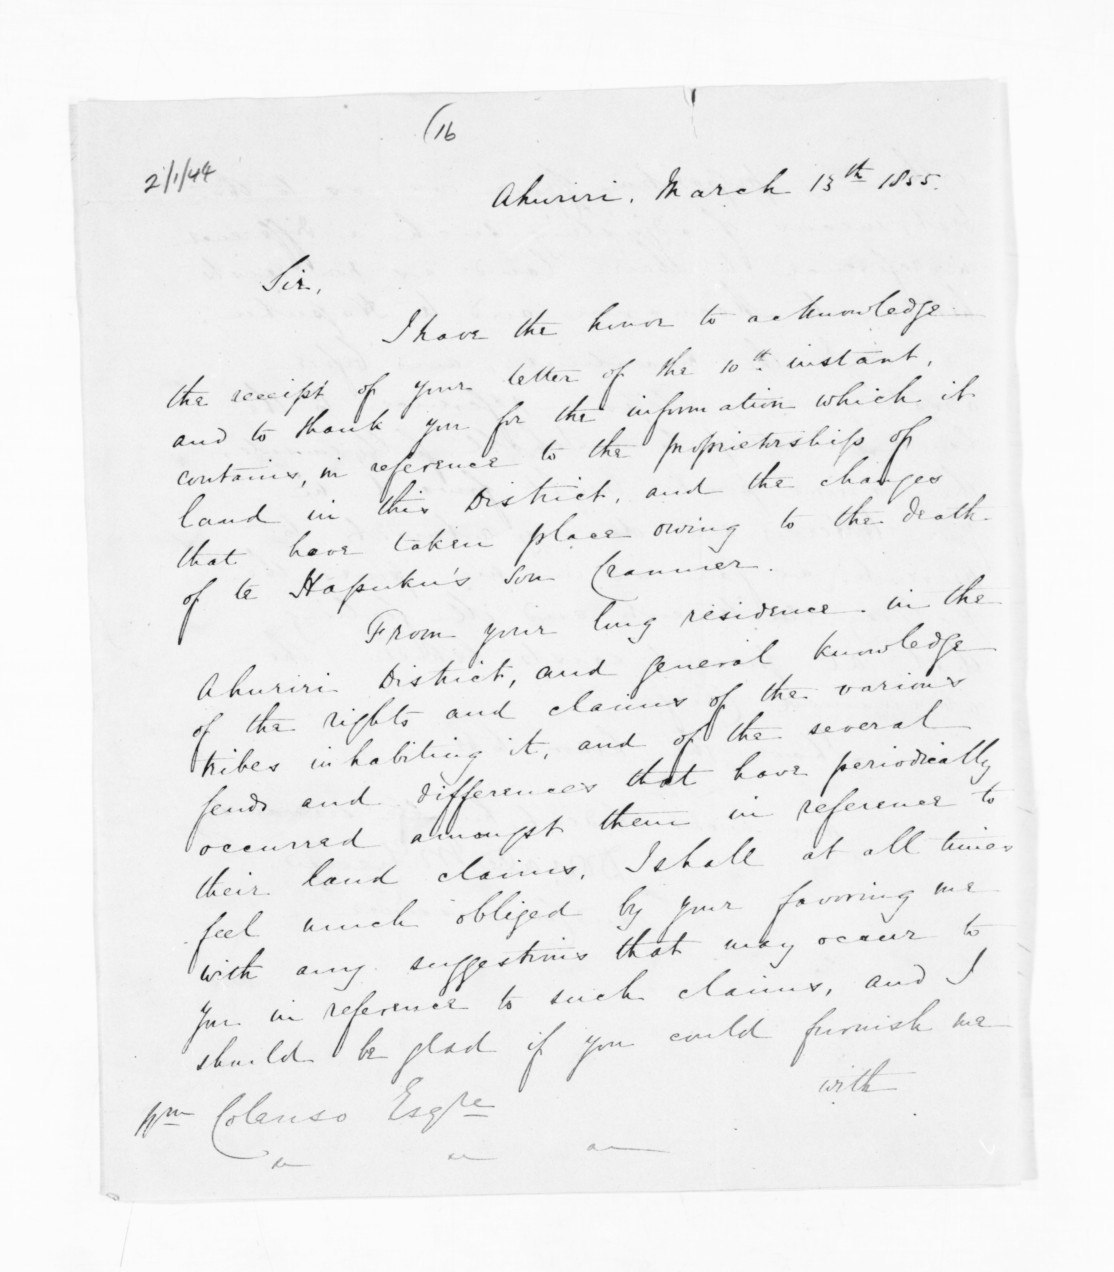 (16
2/1/44
Ahuriri, March 13th 1855.
Sir,
I have the honor to acknowledge
the receipt of your letter of the 10th instant,
and to thank you for the information which it
contains, in reference to the proprietorship of
land in this District, and the changes
that have taken place owing to the death
of te Hapuku's son Cranmer.
From your long residence in the
Ahuriri District, and general knowledge
of the rights and claims of the various
tribes inhabiting it, and of the several
feuds and differences that have periodically
occurred amongst them in reference to
their land claims, I shall at all times
feel much obliged by your favoring me
with any suggestions that may occur to
you in reference to such claims, and I
should be glad if you could furnish me
with
Wm Colenso Esqre